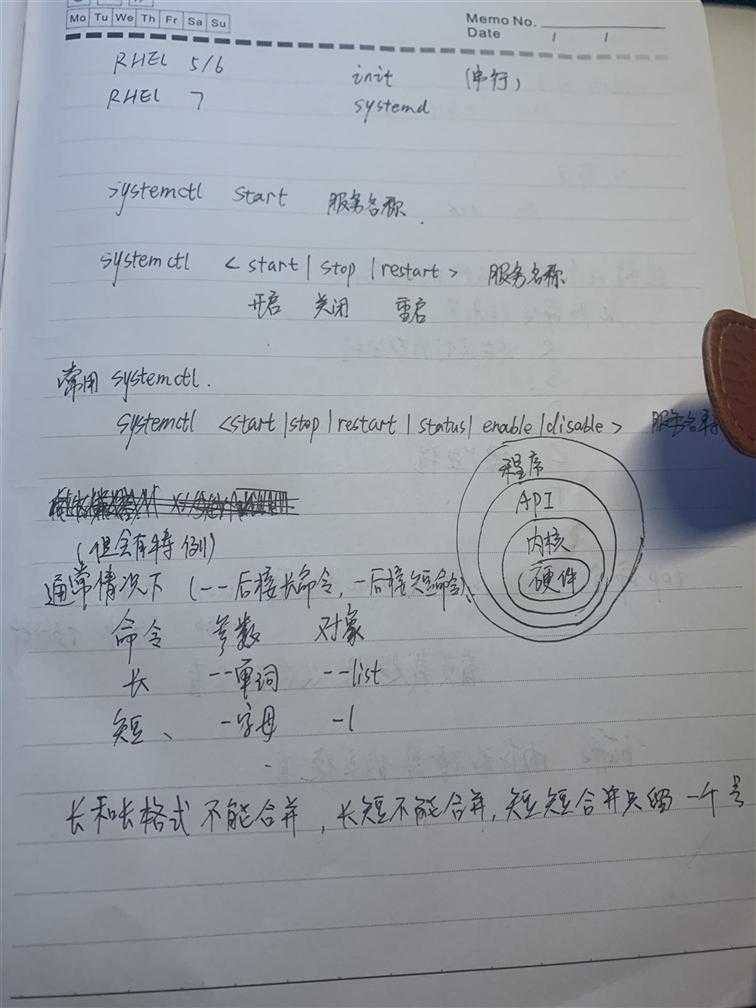 Mo Tu We Th Fr Sa Su
Memo No.
Date / /
RHEL 5/6 init (串行)
RHEL 7 systemd
systemctl start 服务名称.
systemctl < start | stop | restart > 服务名称
开启 关闭 重启
常用 systemctl.
systemctl <start |stop | restart | status| enable |disable > 服务名称
程序
API
内核
硬件
(但会有特例)
通常情况下 (--后接长命令, -后接短命令)、
命令 参数 对象
长 --单词 --list
短、 -字母 -l
长和长格式不能合并, 长短不能合并, 短短合并只留一个号